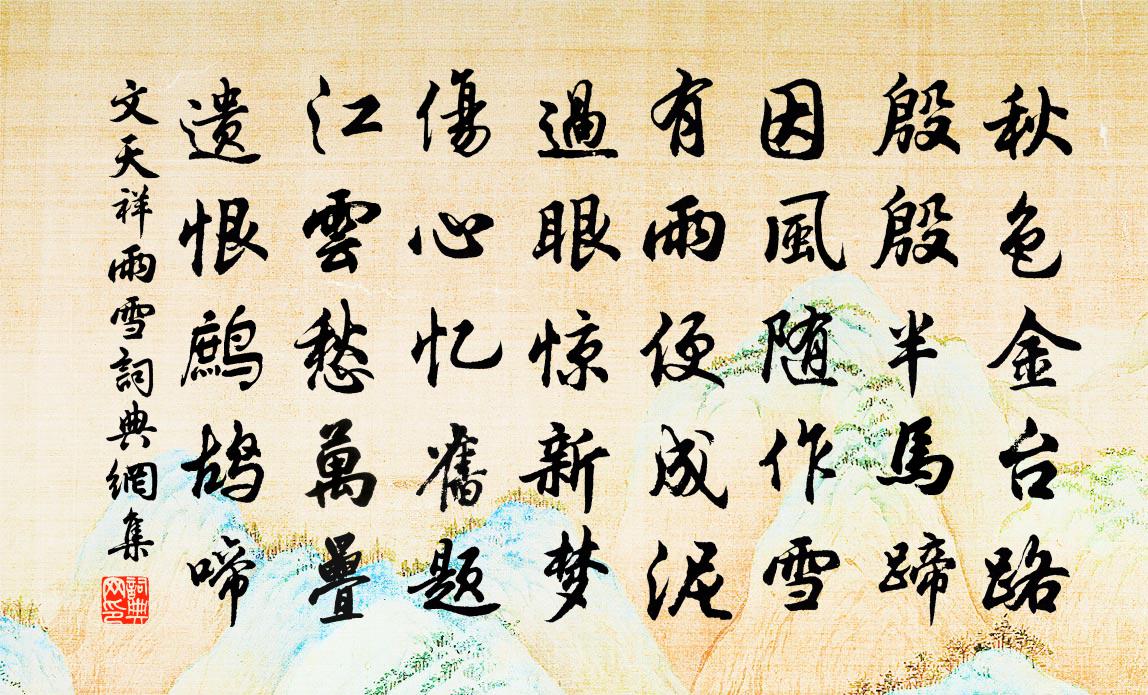 秋色金台路
殷殷半馬蹄
因風随作雪
有雨便成泥
過眼惊新梦
傷心忆舊题
江雲愁萬疊
遗恨鷓鸪啼
文天祥雨雪詞典網集
詞典网印